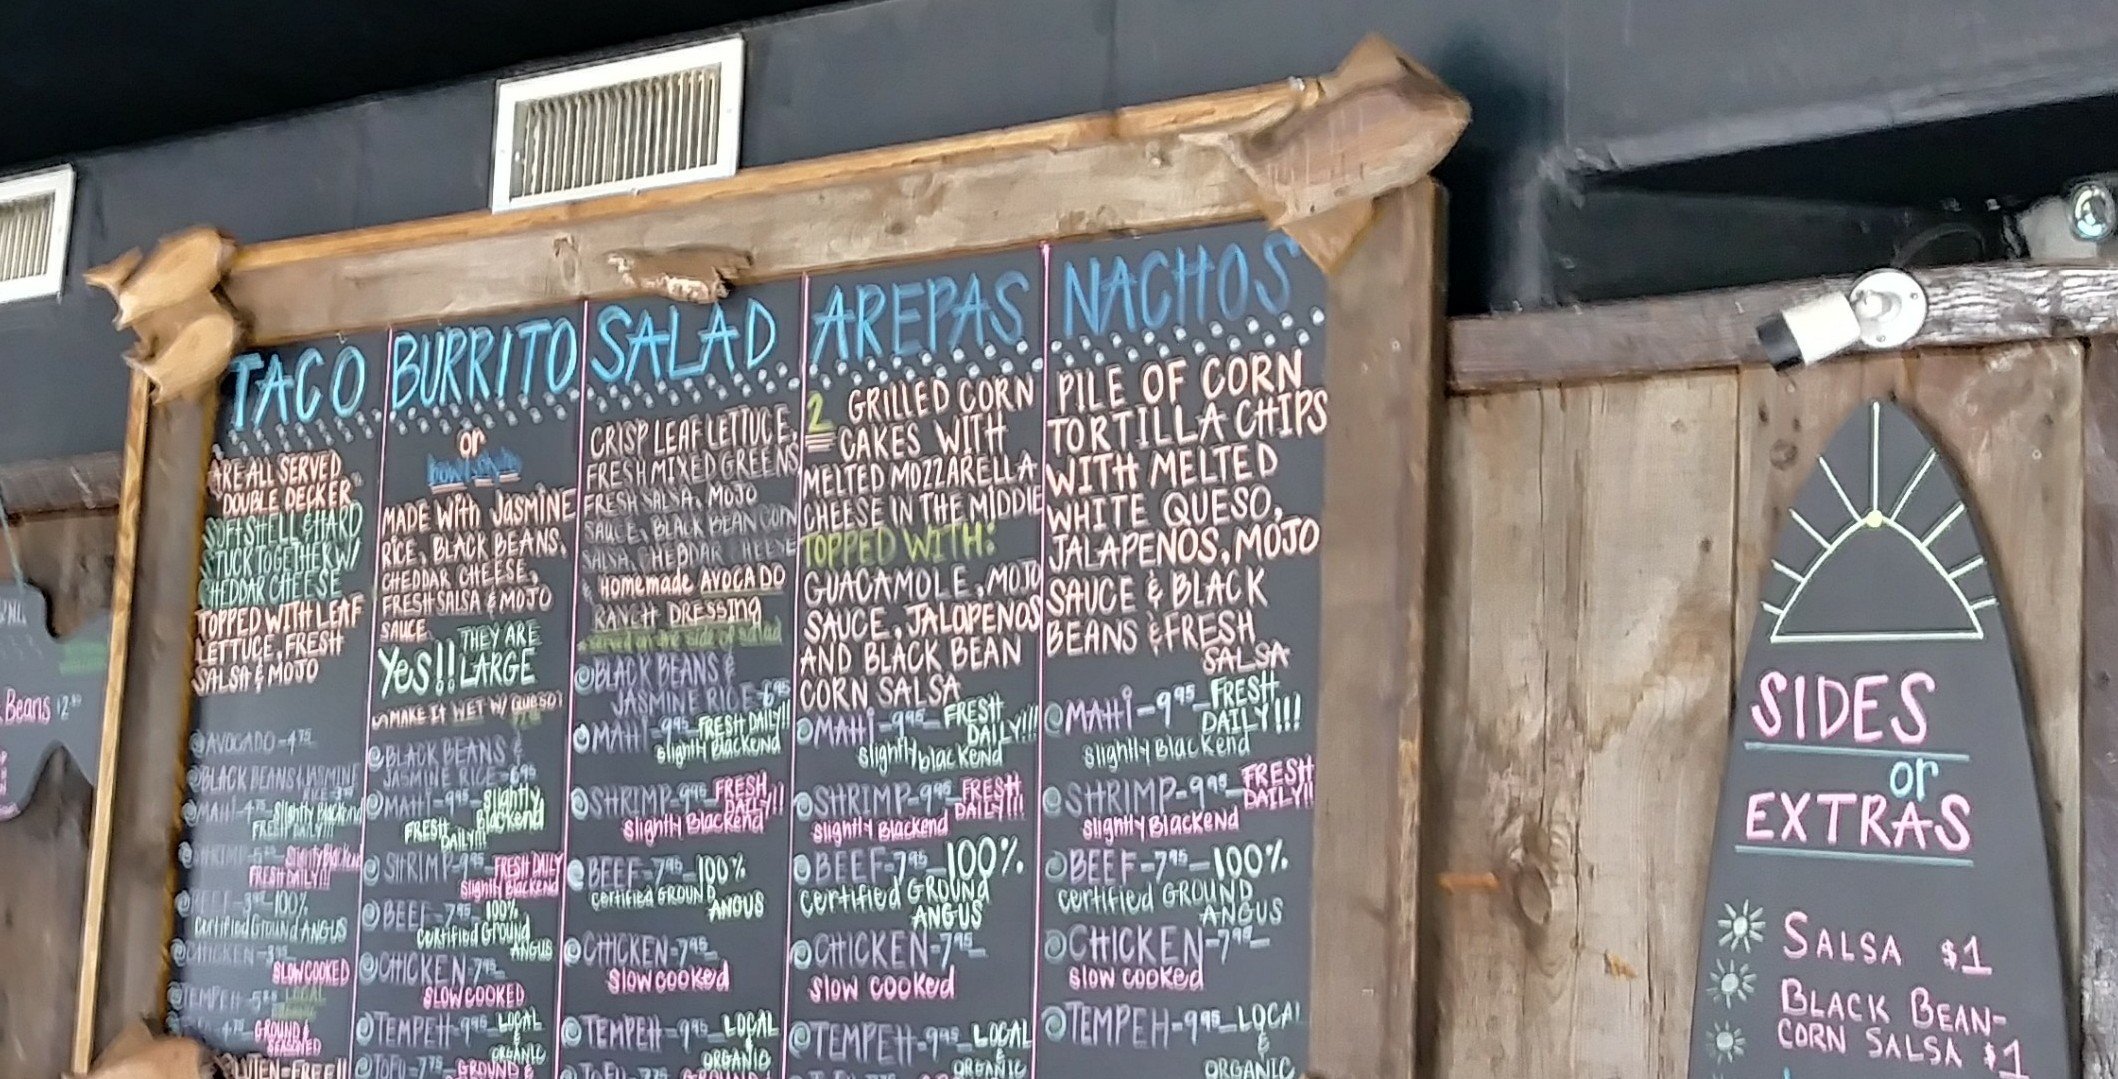 TACO
ARE ALL SERVED
DOUBLE DECKER
SOFT SHELL & HARD
STUCK TOGETHER W/
CHEDDAR CHEESE
TOPPED WITH LEAF
LETTUCE, FRESH
SALSA & MOJO
AVOCADO-4.75
BLACK BEANS & JASMINE
RICE
MAHI-4.75 Slightly Blackend
FRESH DAILY!!!
SHRIMP Slightly Blackend
FRESH DAILY!!
BEEF 100%
certified Ground ANGUS
CHICKEN
SLOW COOKED
TEMPEH LOCAL
GROUND &
SEASONED
GLUTEN-FREE!!
BURRITO
or
bowl-style
MADE With JASMINE
RICE, BLACK BEANS,
CHEDDAR CHEESE,
FRESH SALSA & MOJO
SAUCE
THEY ARE
Yes!! LARGE
MAKE IT WET W/ QUESO!
BLACK BEANS &
JASMINE RICE-6.95
MAHI-9.95-Slightly
Blackend
FRESH
DAILY!!!
SHRIMP-9.95-FRESH DAILY
Slightly Blackend
BEEF-7.95 100%
certified Ground
ANGUS
CHICKEN-7.95
SLOW COOKED
TEMPEH-9.95-LOCAL
&
ORGANIC
TOFU-7.75-GROUND &
SALAD
CRISP LEAF LETTUCE,
FRESH MIXED GREENS
FRESH SALSA, MOJO
SAUCE, BLACK BEAN CORN
SALSA, CHEDDAR CHEESE
Homemade AVOCADO
RANCH DRESSING
served on the side of salad
BLACK BEANS &
JASMINE RICE-6.95
MAHI-9.95-FRESH DAILY!!
Slightly Blackend
SHRIMP-9.95-FRESH
DAILY!!
Slightly Blackend
BEEF-7.95-100%
certified GROUND
ANGUS
CHICKEN-7.95-
Slow cooked
TEMPEH-9.95-LOCAL
&
ORGANIC
TOFU-7.75
AREPAS
2 GRILLED CORN
CAKES WITH
MELTED MOZZARELLA
CHEESE IN THE MIDDLE
TOPPED WITH:
GUACAMOLE, MOJO
SAUCE, JALOPENOS
AND BLACK BEAN
CORN SALSA
MAHI-9.95-FRESH
DAILY!!!
Slightly blackend
SHRIMP-9.95-FRESH
DAILY!!!
Slightly Blackend
BEEF-7.95-100%
certified GROUND
ANGUS
CHICKEN-7.95-
Slow cooked
TEMPEH-9.95-LOCAL
&
ORGANIC
NACHOS
PILE OF CORN
TORTILLA CHIPS
WITH MELTED
WHITE QUESO,
JALAPENOS, MOJO
SAUCE & BLACK
BEANS & FRESH
SALSA
MAHI-9.95-FRESH
DAILY!!!
Slightly Blackend
SHRIMP-9.95-FRESH
DAILY!!
Slightly Blackend
BEEF-7.95-100%
certified GROUND
ANGUS
CHICKEN-7.95-
Slow cooked
TEMPEH-9.95-LOCAL
&
ORGANIC
SIDES
or
EXTRAS
SALSA $1
BLACK BEAN-
CORN SALSA $1
Beans